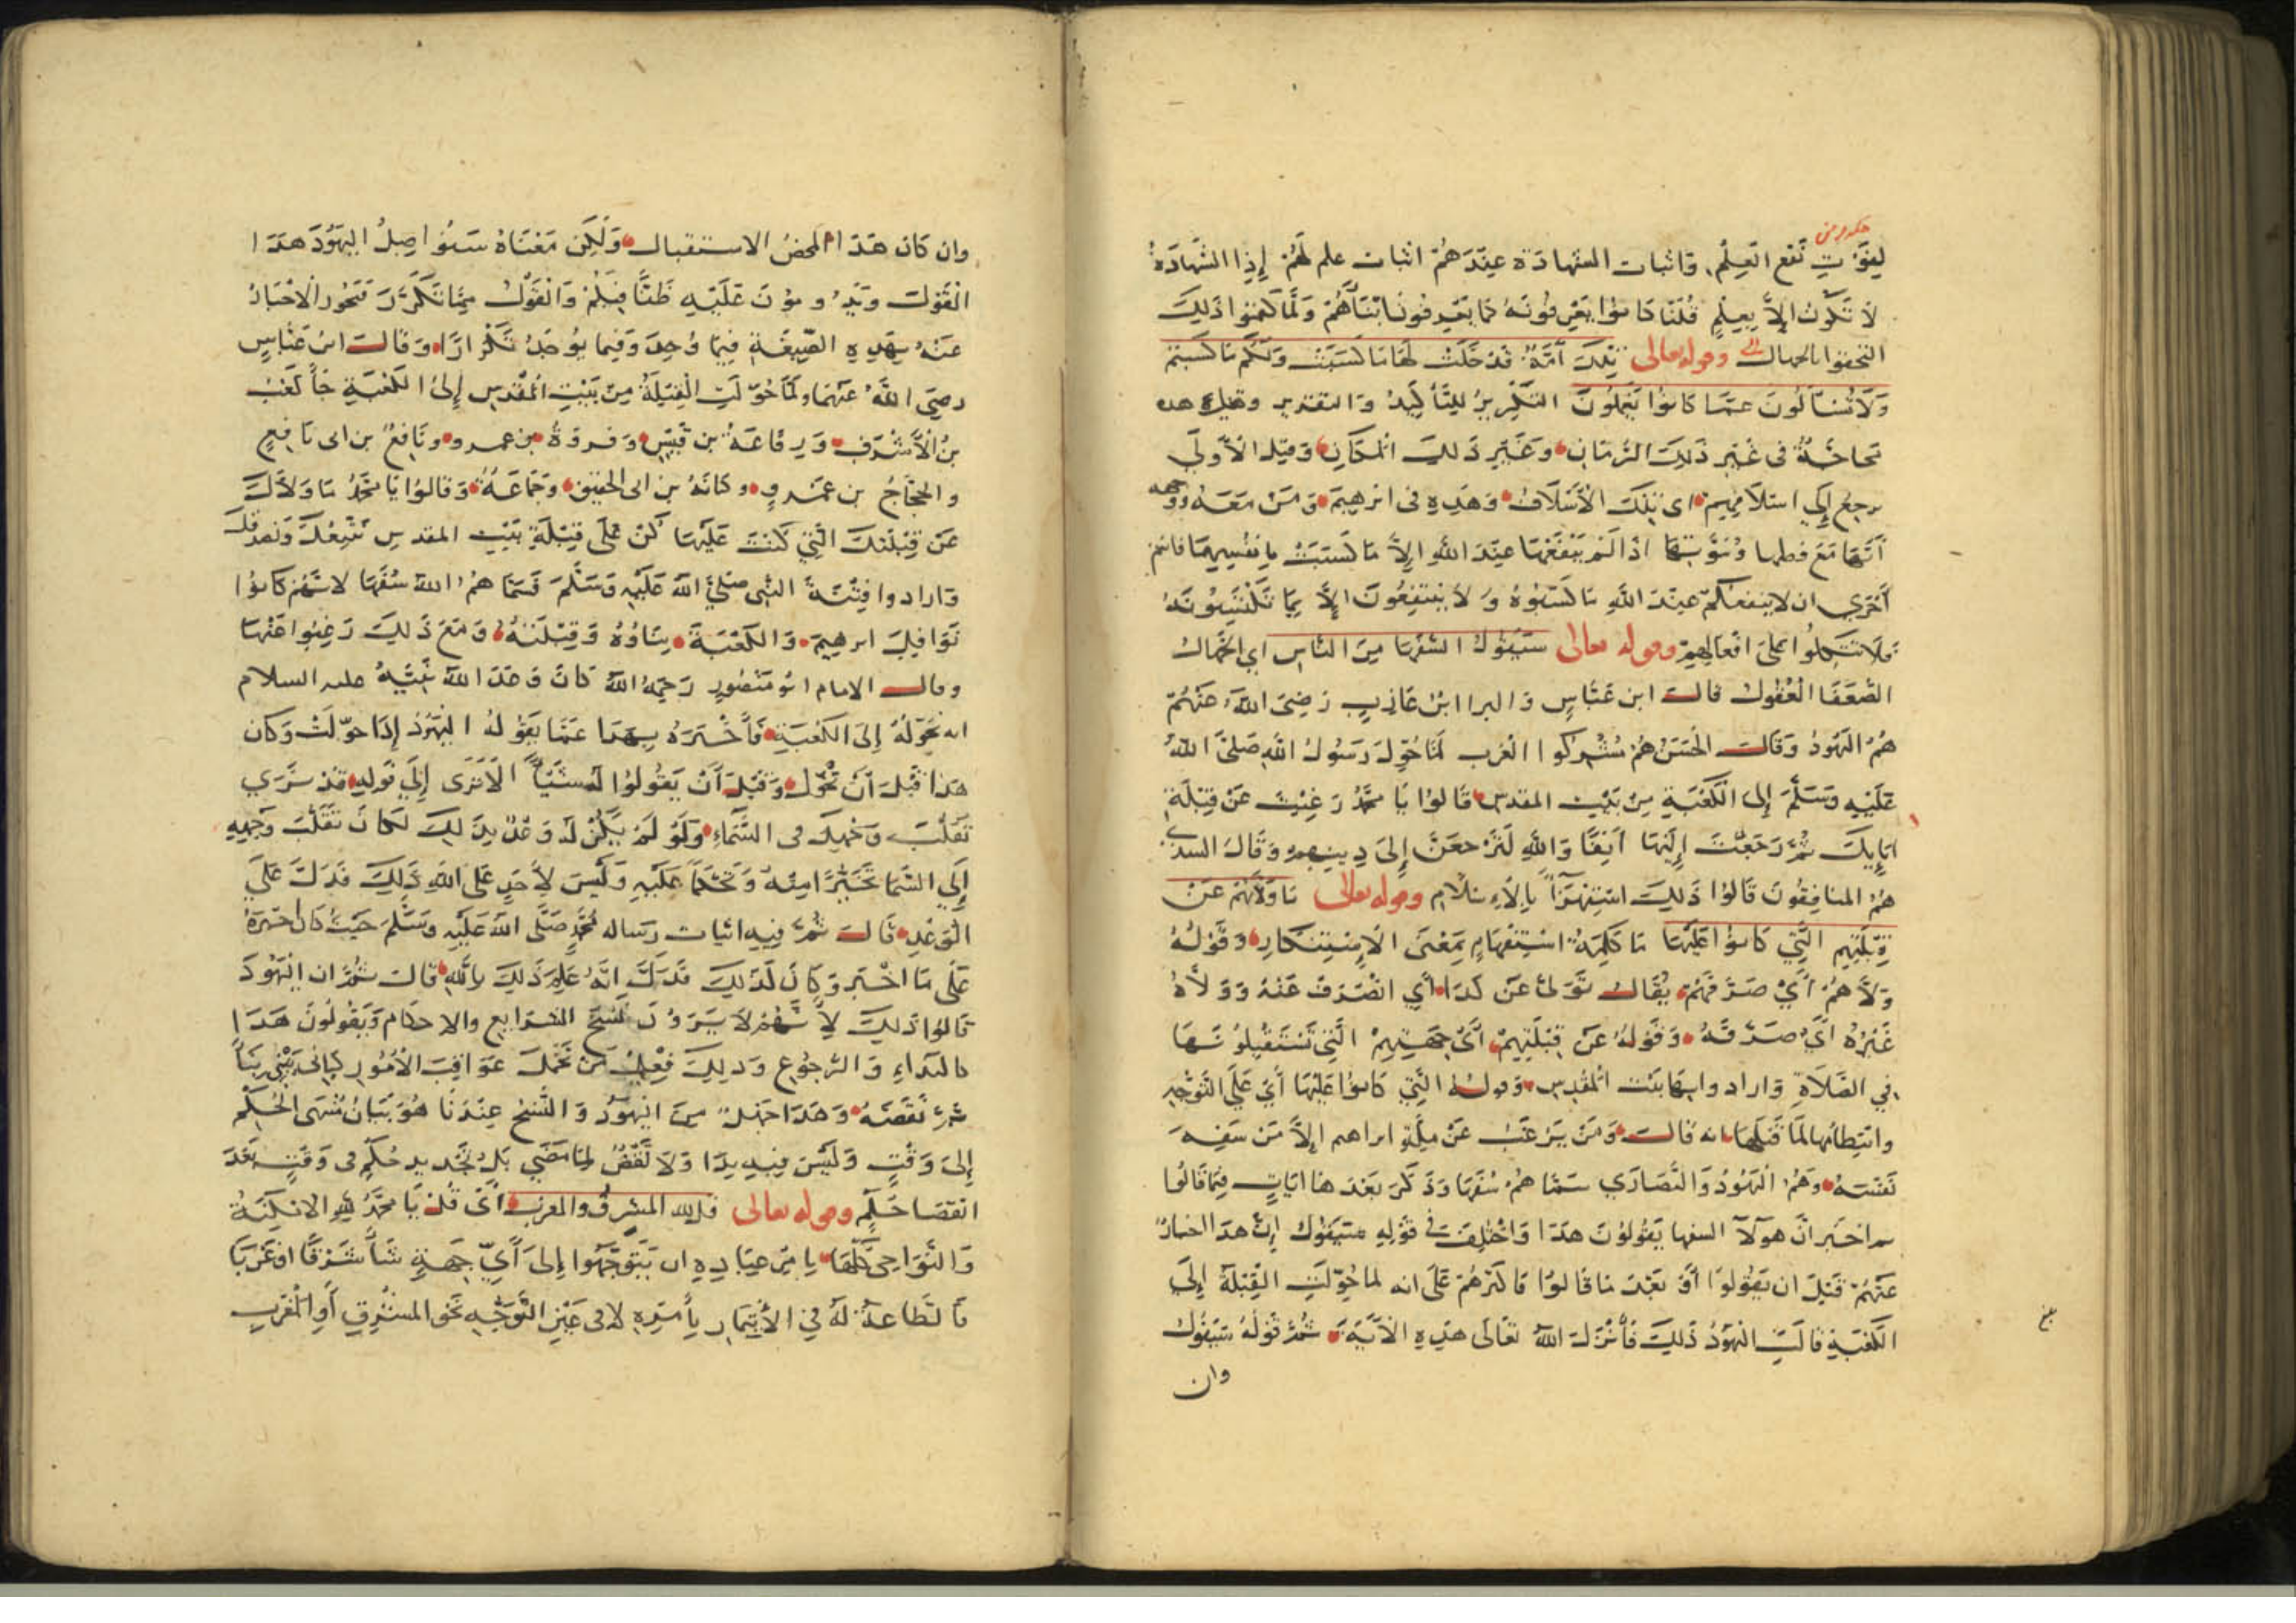 لفوت نفع العلم واثبات الشهادة عندهم اثبات علم لهم إذا الشهادة
لا تكون إلا بعلم قلنا كانوا يعرفونه كما يعرفون ابناءهم ولما كتموا ذلك
التحقوا بالجهال وقوله تعالى تلك أمة قد خلت لها ما كسبت ولكم ما كسبتم
ولا تسألون عما كانوا يعملون التكرير للتأكيد والتقرير وقيل هذه
محاجة في غير ذلك الزمان وغير ذلك المكان وقيل الأولى
يرجع إلى اسلافهم اي تلك الأسلاف وهذه في ابرهيم ومن معه ووجهه
أنها مع فضلها ونبوتها اذا لم ينفعها عند الله إلا ما كسبت بانفسهما فانتم
أحرى ان لا ينفعكم عند الله ما كسبوه ولا ينتفعون إلا بما تكتسبونه
فلا تتكلوا على افعالهم وقوله تعالى سيقول السفها من الناس اي الجهال
الضعفا العقول قالت ابن عباس والبرا ابن عازب رضي الله عنهم
هم اليهود وقالت الحسن هم مشركوا العرب لما حول رسول الله صلى الله
عليه وسلم إلى الكعبة من بيت المقدس قالوا يا محمد رغبت عن قبلة
ابايك ثم رجعت إليها آنفا والله لترجعن إلى دينهم وقال السدي
هم المنافقون قالوا ذلك استهزآ بالإسلام وقوله تعالى ما ولاهم عن
قبلتهم التي كانوا عليها ما كلمة استفهام بمعنى الاستنكار وقوله
ولاهم أي صرفهم يقال تولى عن كذا أي انصرف عنه وولاه
غيره أي صرفه وقوله عن قبلتهم أي جهتهم التي تستقبلونها
في الصلاة واراد وابها بيت المقدس وقوله التي كانوا عليها أي على التوجه
وانتظامها لما قبلها انه قالت ومن يرغب عن ملة ابراهم إلا من سفه
نفسه وهم اليهود والنصارى سماهم سفها وذكر بعد هذا ايات فيما قالوا
اخبر ان هولآ السفها يقولون هذا واختلف في قوله سيقول إن هذا اخبار
عنهم قبل ان يقولوا أو بعد ما قالوا فاكثرهم على انه لما حولت القبلة إلى
الكعبة قالت اليهود ذلك فأنزل الله تعالى هذه الآية ثم قوله سيقول
وان
وان كان هذا لمحض الاستقبال ولكن معناه سيواصل اليهود هذا
القول ويدومون عليه ظنا فيلم والقول مما تكرر فتجوز الاخبار
عنه بهذه الصيغة فيما وجد وفيما يوجد تكرارا وقالت ابن عباس
رضي الله عنهما ولما حولت القبلة من بيت المقدس إلى الكعبة جا كعب
بن الأشرف ورفاعة بن قيس وفروة بن عمرو ونافع بن ابي نافع
والحجاج بن عمرو وكنانة بن ابي الحقيق وجماعة وقالوا يا محمد ما ولاك
عن قبلتك التي كنت عليها كن على قبلة بيت المقدس نتبعك ونصدقك
وارادوا فتنة النبي صلى الله عليه وسلم فسماهم الله سفها لانهم كانوا
توافيك ابرهيم والكعبة بناؤه وقبلته ومع ذلك رغبوا عنها
وقالت الامام ابو منصور رحمه الله كان وعد الله نبيه عليه السلام
انه يحوله إلى الكعبة فأخبره بهذا عما يقوله اليهود إذا حولت وكان
هذا قبل أن تحول وقبل أن يقولوا شيئا ألا ترى إلى قوله قد نرى
تقلب وجهك في السماء ولو لم يكن له وعد بذلك لكان تقلب وجهه
إلى السما تخيرا منه وتحكما عليه وليس لأحد على الله ذلك فدل على
الوعد قالت ثم فيه اثبات رسالة محمد صلى الله عليه وسلم حيث كان اخبره
على ما اخبر وكان لذلك فدل انه علم ذلك بالله قالت ثم ان اليهود
قالوا ذلك لأنهم لا يرون نسخ الشرايع والاحكام ويقولون هذا
كالبداء والرجوع وذلك فعل من نجهل عواقب الأمور كباني يبني بنا
ثم نقضه وهذا جهل من اليهود والنسخ عندنا هو بيان منتهى الحكم
إلى وقت وليس فيه بدا ولا نقض لما مضى بل تجديد حكم في وقت بعد
انقضا حكم وقوله تعالى قل لله المشرق والمغرب أي قل يا محمد لله الامكنة
والنواحي كلها يامر عباده ان يتوجهوا إلى أي جهة شا شرقا او غربا
فالطاعة له في الأيتمار بأمره لا في عين التوجه نحو المشرق أو المغرب